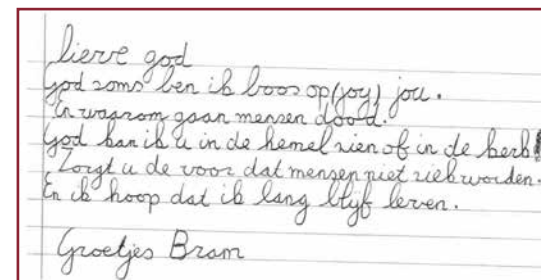 lieve god
God soms ben ik boos op (joy) jou.
En waarom gaan mensen dood.
God kan ik u in de hemel zien of in de kerk
Zorgt u de voor dat mensen niet ziek worden.
En ik hoop dat ik lang blijf leven.
Groetjes Bram